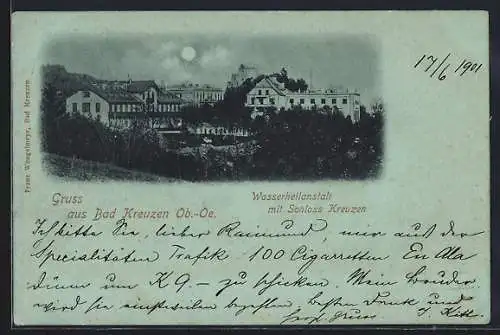 17/6 1901
Gruss
aus Bad Kreuzen Ob.-Oe.
Wasserheilanstalt
mit Schloss Kreuzen
Franz Wingelmayr, Bad Kreuzen.
Ich bitte Sie, lieber Raimund, mir aus der
Specialitäten Trafik 100 Cigaretten En Ala
um K 9.- zu schicken. Mein Bruder
wird sie einstweilen begleichen. Besten Dank und
Gruss